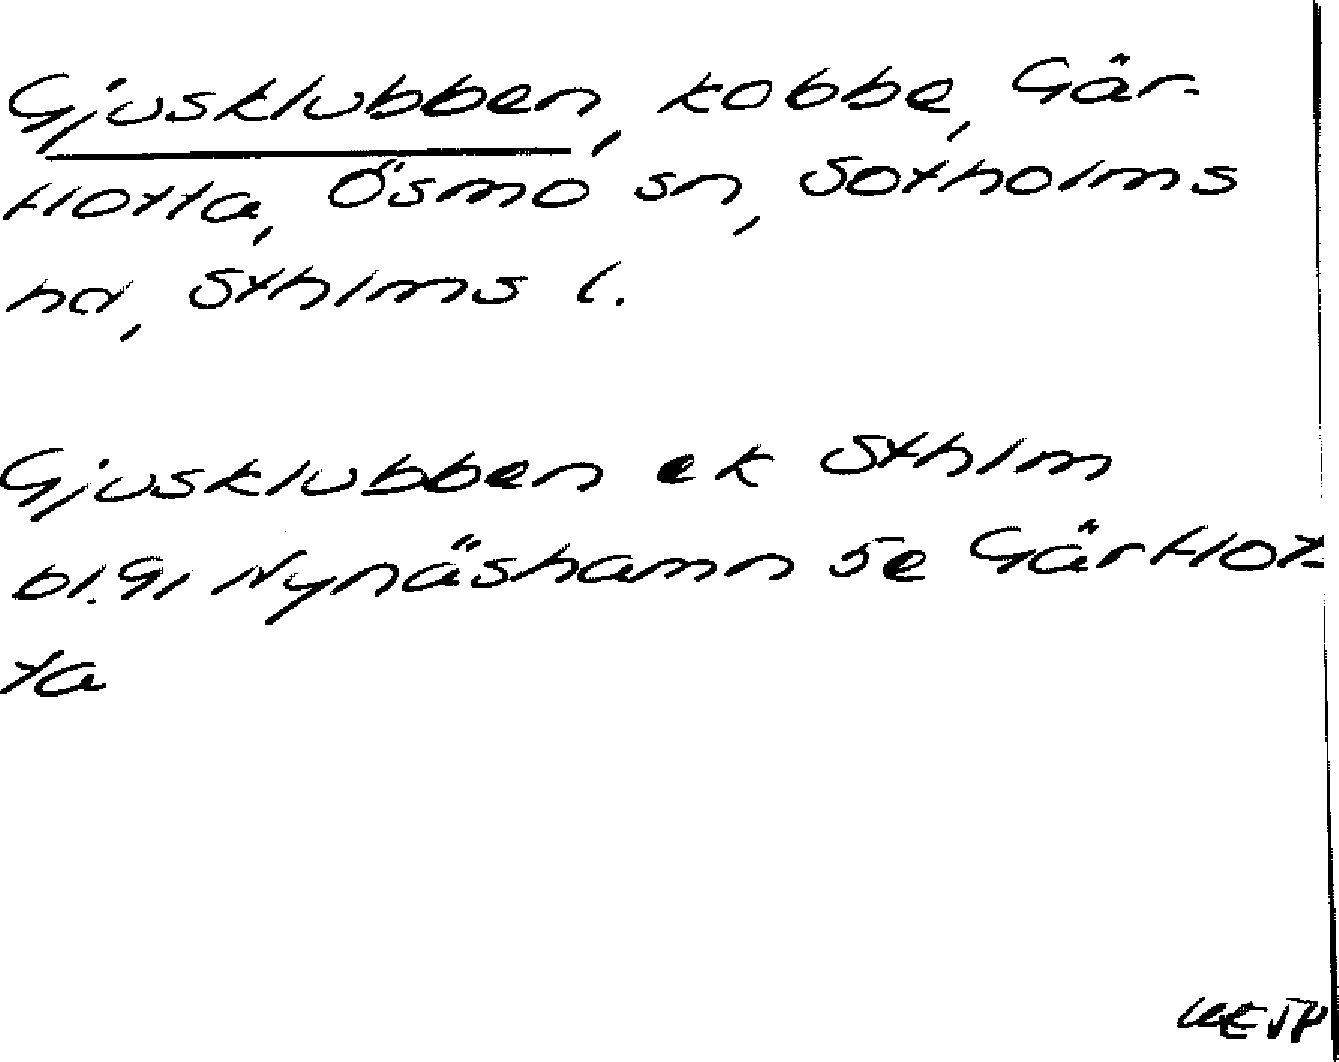 Gjusklubben, kobbe, Går-
flotta, Ösmo sn, Sotholms
hd, Sthlms l.
Gjusklubben ek Sthlm
bl. 91 Nynäshamn se Gårflot-
ta